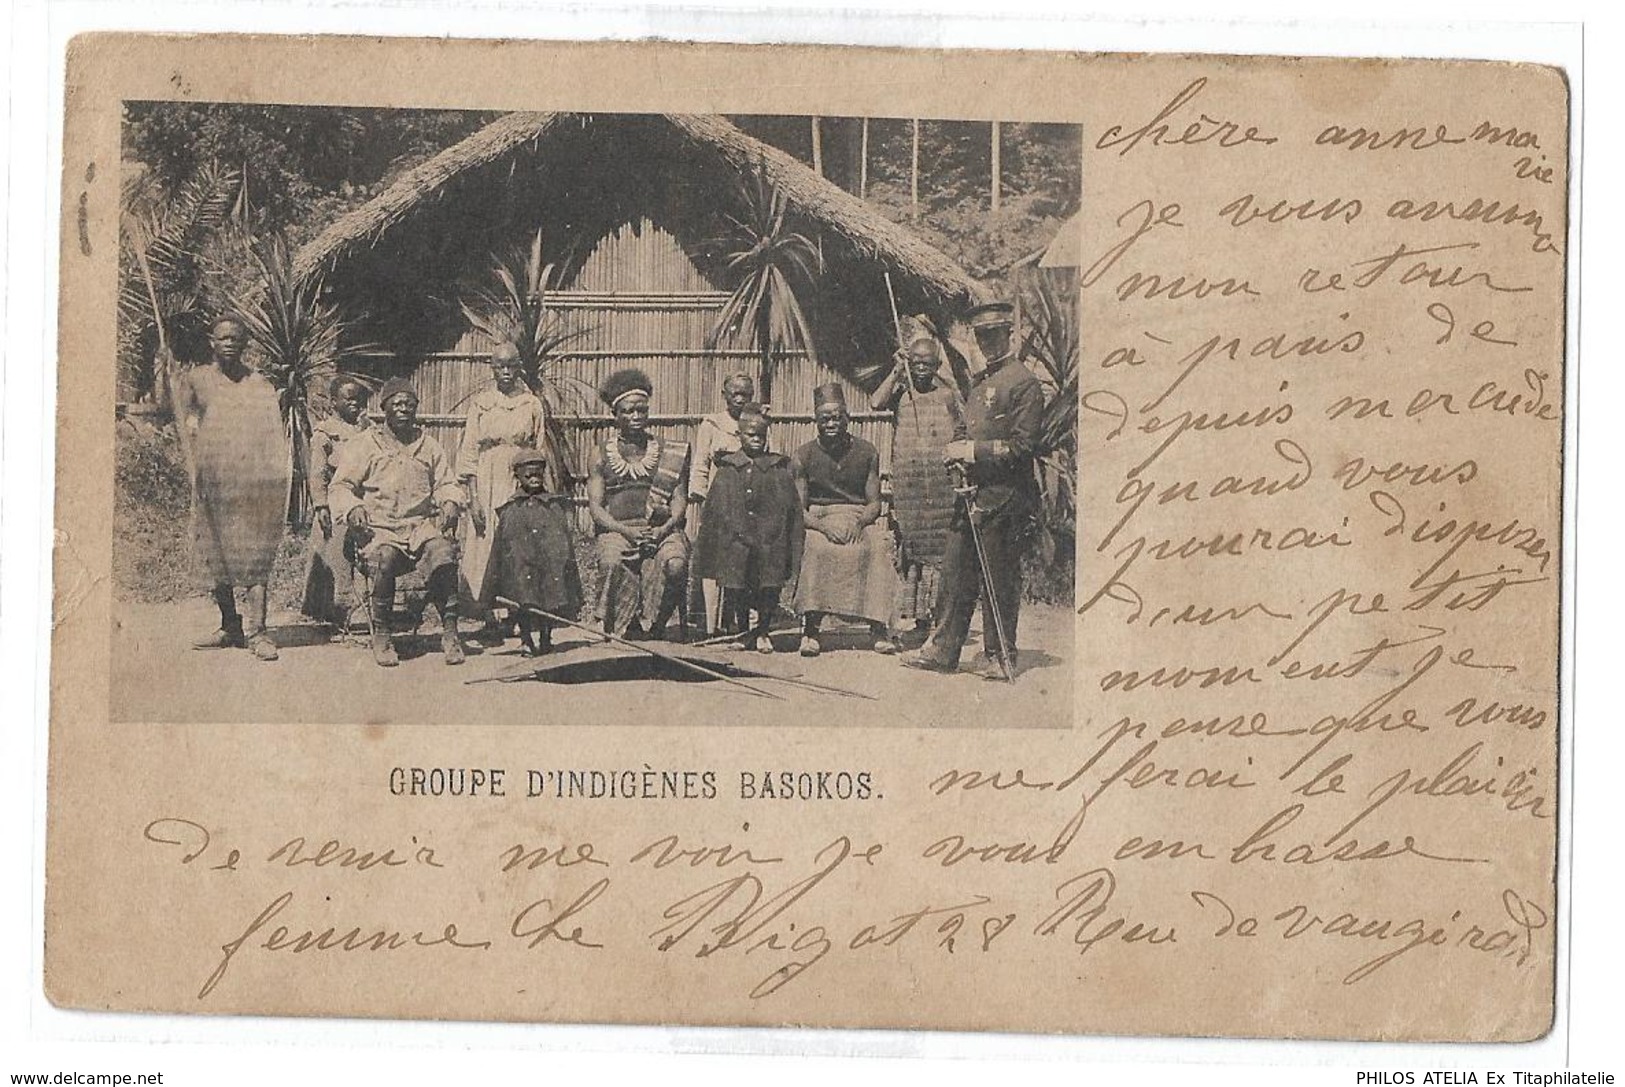 chère anne ma
rie
je vous annonce
mon retour
à paris de
depuis mercude
quand vous
pourai disposer
d'un petit
moment je
pense que vous
GROUPE D'INDIGÈNES BASOKOS.
me ferai le plaisir
de venir me voir je vous embrasse
femme Che Bigot 28 Rue de vaugirad
www.delcampe.net
PHILOS ATELIA Ex Titaphilatelie